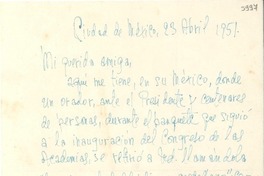 5997
Ciudad de México, 23 Abril 1951.
Mi querida amiga,
aquí me tiene, en su México, donde
un orador, ante el Presidente y centenares
de personas, durante el banquete que siguió
a la inauguración del Congreso de las
Academias, se refirió a Ud. llamándola